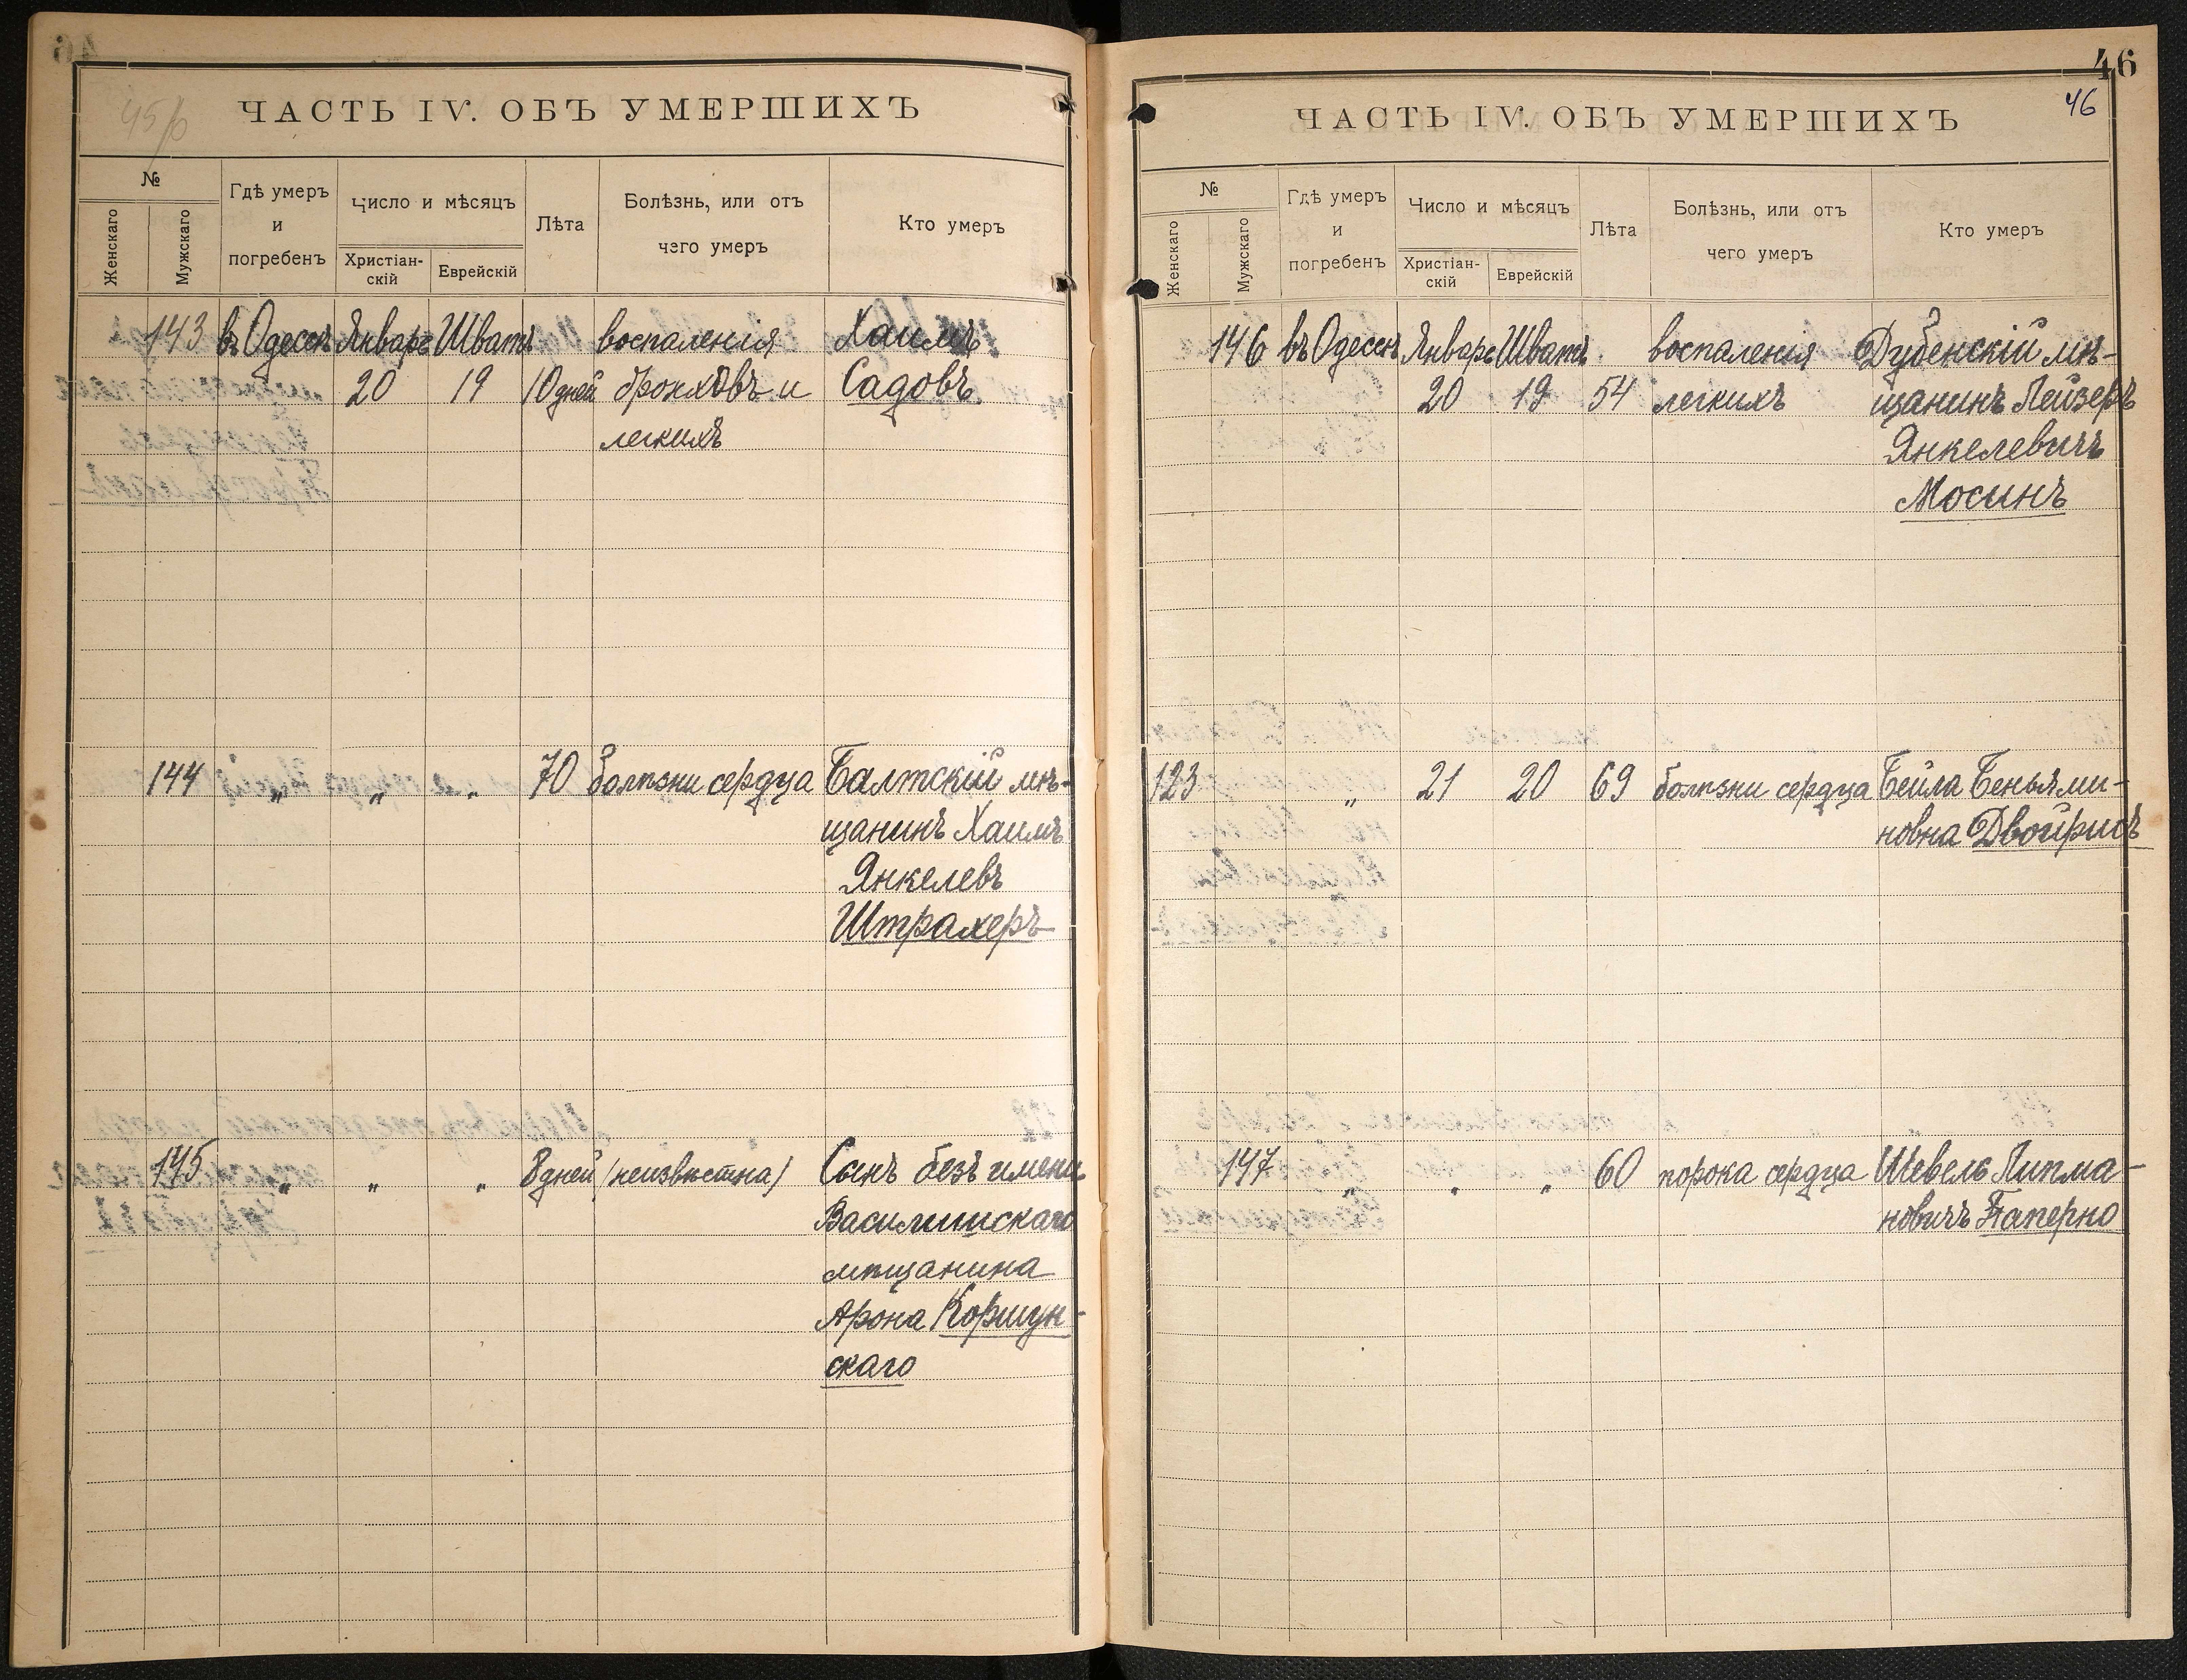 45/б
ЧАСТЬ IV. ОБЪ УМЕРШИХЪ
№
Женскаго
Мужскаго
Гдѣ умеръ
и
погребенъ
Число и мѣсяцъ
Христіан-
скій
Еврейскій
Лѣта
Болѣзнь, или отъ
чего умеръ
Кто умеръ
143 въ Одессѣ Январь Шватъ воспаленія Хаимъ
20 19 10 дней бронховъ и Садовъ.
легкихъ
144 „ „ „ 70 болѣзни сердца Балтскій мѣ-
щанинъ Хаимъ
Янкелевъ
Штрахеръ
145 „ „ „ 8 дней (неизвѣстна) Сынъ безъ имени
Василишскаго
мѣщанина
Арона Коршун-
скаго
46
46
ЧАСТЬ IV. ОБЪ УМЕРШИХЪ
№
Женскаго
Мужскаго
Гдѣ умеръ
и
погребенъ
Число и мѣсяцъ
Христіан-
скій
Еврейскій
Лѣта
Болѣзнь, или отъ
чего умеръ
Кто умеръ
146 въ Одессѣ Январь Шватъ. воспаленія Дубенскій мѣ-
20 19 54 легкихъ щанинъ Лейзеръ
Янкелевичъ
Мосинъ
123 „ 21 20 69 болѣзни сердца Бейла Беньями-
новна Двойрисъ
147 „ „ „ 60 порока сердца Шевель Липма-
новичъ Паперно